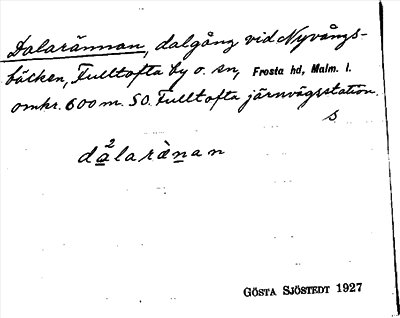 Dalarännan, dalgång vid Nyvångs-
bäcken, Fulltofta by o. sn, Frosta hd, Malm. l.
omkr. 600 m. SO. Fulltofta järnvägsstation.
S
da²laränan
GÖSTA SJÖSTEDT 1927